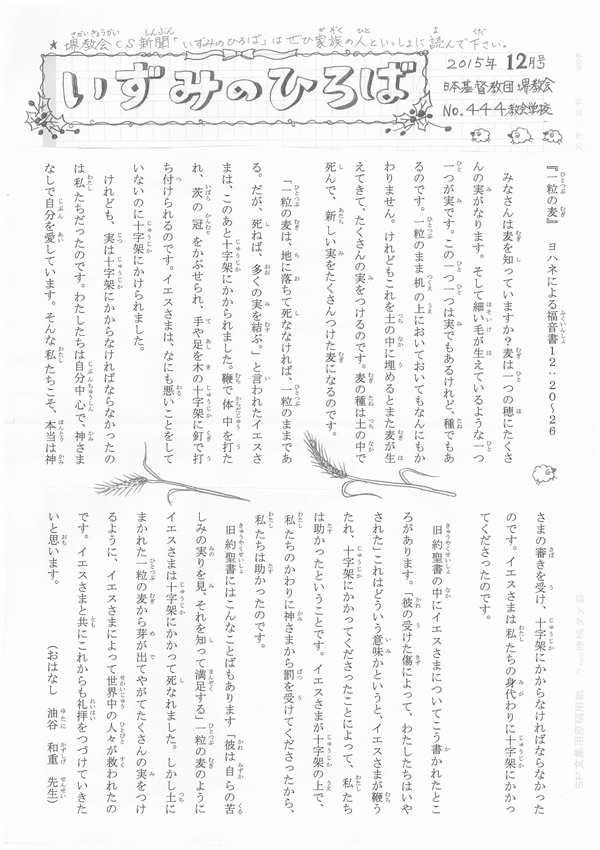 ★堺教会CS新聞「いずみのひろば」はぜひ家族の人といっしょに読んで下さい。
いずみのひろば
2015年12月号
日本基督教団堺教会
No.444教会学校
『一粒の麦』 ヨハネによる福音書12:20~26
みなさんは麦を知っていますか?麦は一つの穂にたくさ
んの実がなります。そして細い毛が生えているような一つ
一つが実です。この一つ一つは実でもあるけれど、種でもあ
るのです。一粒のまま机の上においておいてもなんにもか
わりません。けれどもこれを土の中に埋めるとまた麦が生
えてきて、たくさんの実をつけるのです。麦の種は土の中で
死んで、新しい実をたくさんつけた麦になるのです。
「一粒の麦は、地に落ちて死ななければ、一粒のままであ
る。だが、死ねば、多くの実を結ぶ。」と言われたイエスさ
まは、このあと十字架にかかられました。鞭で体中を打た
れ、茨の冠をかぶせられ、手や足を木の十字架に釘で打
ち付けられるのです。イエスさまは、なにも悪いことをして
いないのに十字架にかけられました。
けれども、実は十字架にかからなければならなかったの
は私たちだったのです。わたしたちは自分中心で、神さま
なしで自分を愛しています。そんな私たちこそ、本当は神
さまの審きを受け、十字架にかからなければならなかった
のです。イエスさまは私たちの身代わりに十字架にかかっ
てくださったのです。
旧約聖書の中にイエスさまについてこう書かれたとこ
ろがあります。「彼の受けた傷によって、わたしたちはいや
された」これはどういう意味かというと、イエスさまが鞭う
たれ、十字架にかかってくださったことによって、私たち
は助かったということです。イエスさまが十字架の上で、
私たちのかわりに神さまから罰を受けてくださったから、
私たちは助かったのです。
旧約聖書にはこんなことばもあります「彼は自らの苦
しみの実りを見、それを知って満足する」一粒の麦のように
イエスさまは十字架にかかって死なれました。しかし土に
まかれた一粒の麦から芽が出てやがてたくさんの実をつけ
るように、イエスさまによって世界中の人々が救われたの
です。イエスさまと共にこれからも礼拝をつづけていきた
いと思います。
(おはなし 油谷 和重 先生)